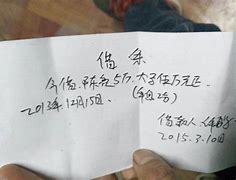 借条
今借陈先5万.大写伍万元正
2013年12月15日. (年息2分)
借款人
2015.3.10日